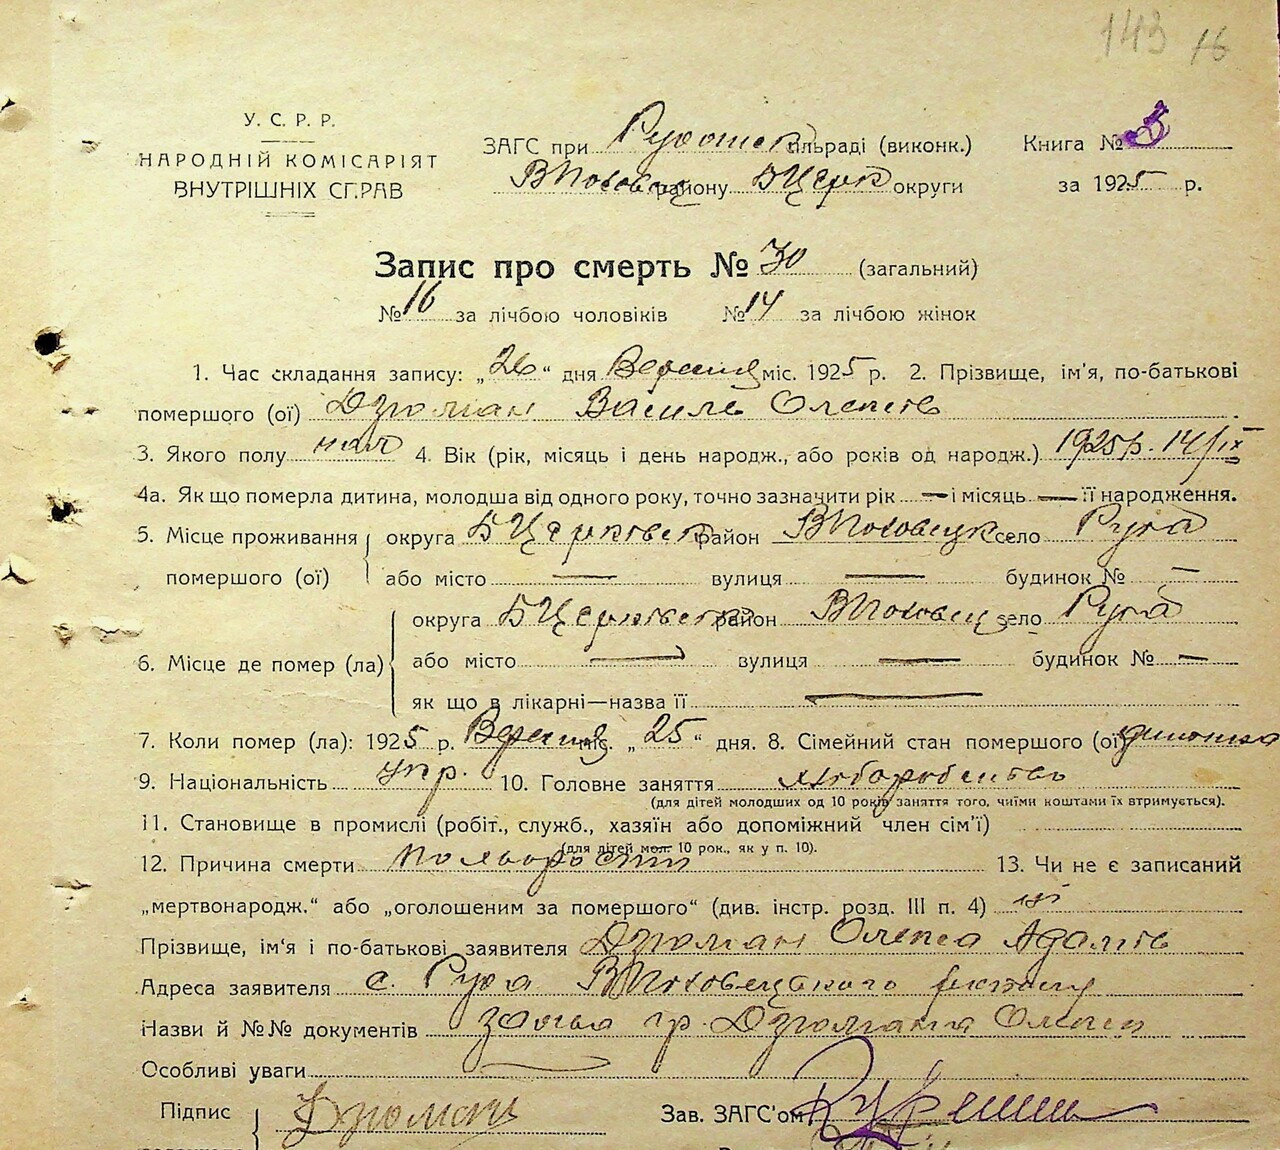 143 16
У. С. Р. Р.
НАРОДНІЙ КОМІСАРІЯТ
ВНУТРІШНІХ СПРАВ
ЗАГС при сільраді (виконк.)
району БЦерк округи
Книга №
за 1925 р.
Запис про смерть № 30 (загальний)
№ 16 за лічбою чоловіків № 14 за лічбою жінок
1. Час складання запису: „26“ дня Вересня міс. 1925 р. 2. Прізвище, ім'я, по-батькові
помершого (ої) Дзюман Василь Олепсів
3. Якого полу чол 4. Вік (рік, місяць і день народж., або років од народж.) 1925 р. 14/IX
4а. Як що померла дитина, молодша від одного року, точно зазначити рік — і місяць — її народження.
5. Місце проживання округа БЦерківська район село Руда
помершого (ої) або місто — вулиця — будинок № —
округа БЦерківська район село Руда
6. Місце де помер (ла) або місто — вулиця — будинок № —
як що в лікарні—назва її —
7. Коли помер (ла): 1925 р. Вересня міс. „25“ дня. 8. Сімейний стан помершого (ої) дитина
9. Національність укр. 10. Головне заняття хліборобство
(для дітей молодших од 10 років заняття того, чиїми коштами їх втримується).
11. Становище в промислі (робіт., служб., хазяїн або допоміжний член сім'ї)
(для дітей мол. 10 рок., як у п. 10).
12. Причина смерти 13. Чи не є записаний
„мертвонародж.“ або „оголошеним за помершого“ (див. інстр. розд. III п. 4) ні
Прізвище, ім'я і по-батькові заявителя Дзюман Олепса Адамів
Адреса заявителя с. Руда району
Назви й №№ документів заява гр. Дзюмана
Особливі уваги
Підпис Дзюман Зав. ЗАГС'ом